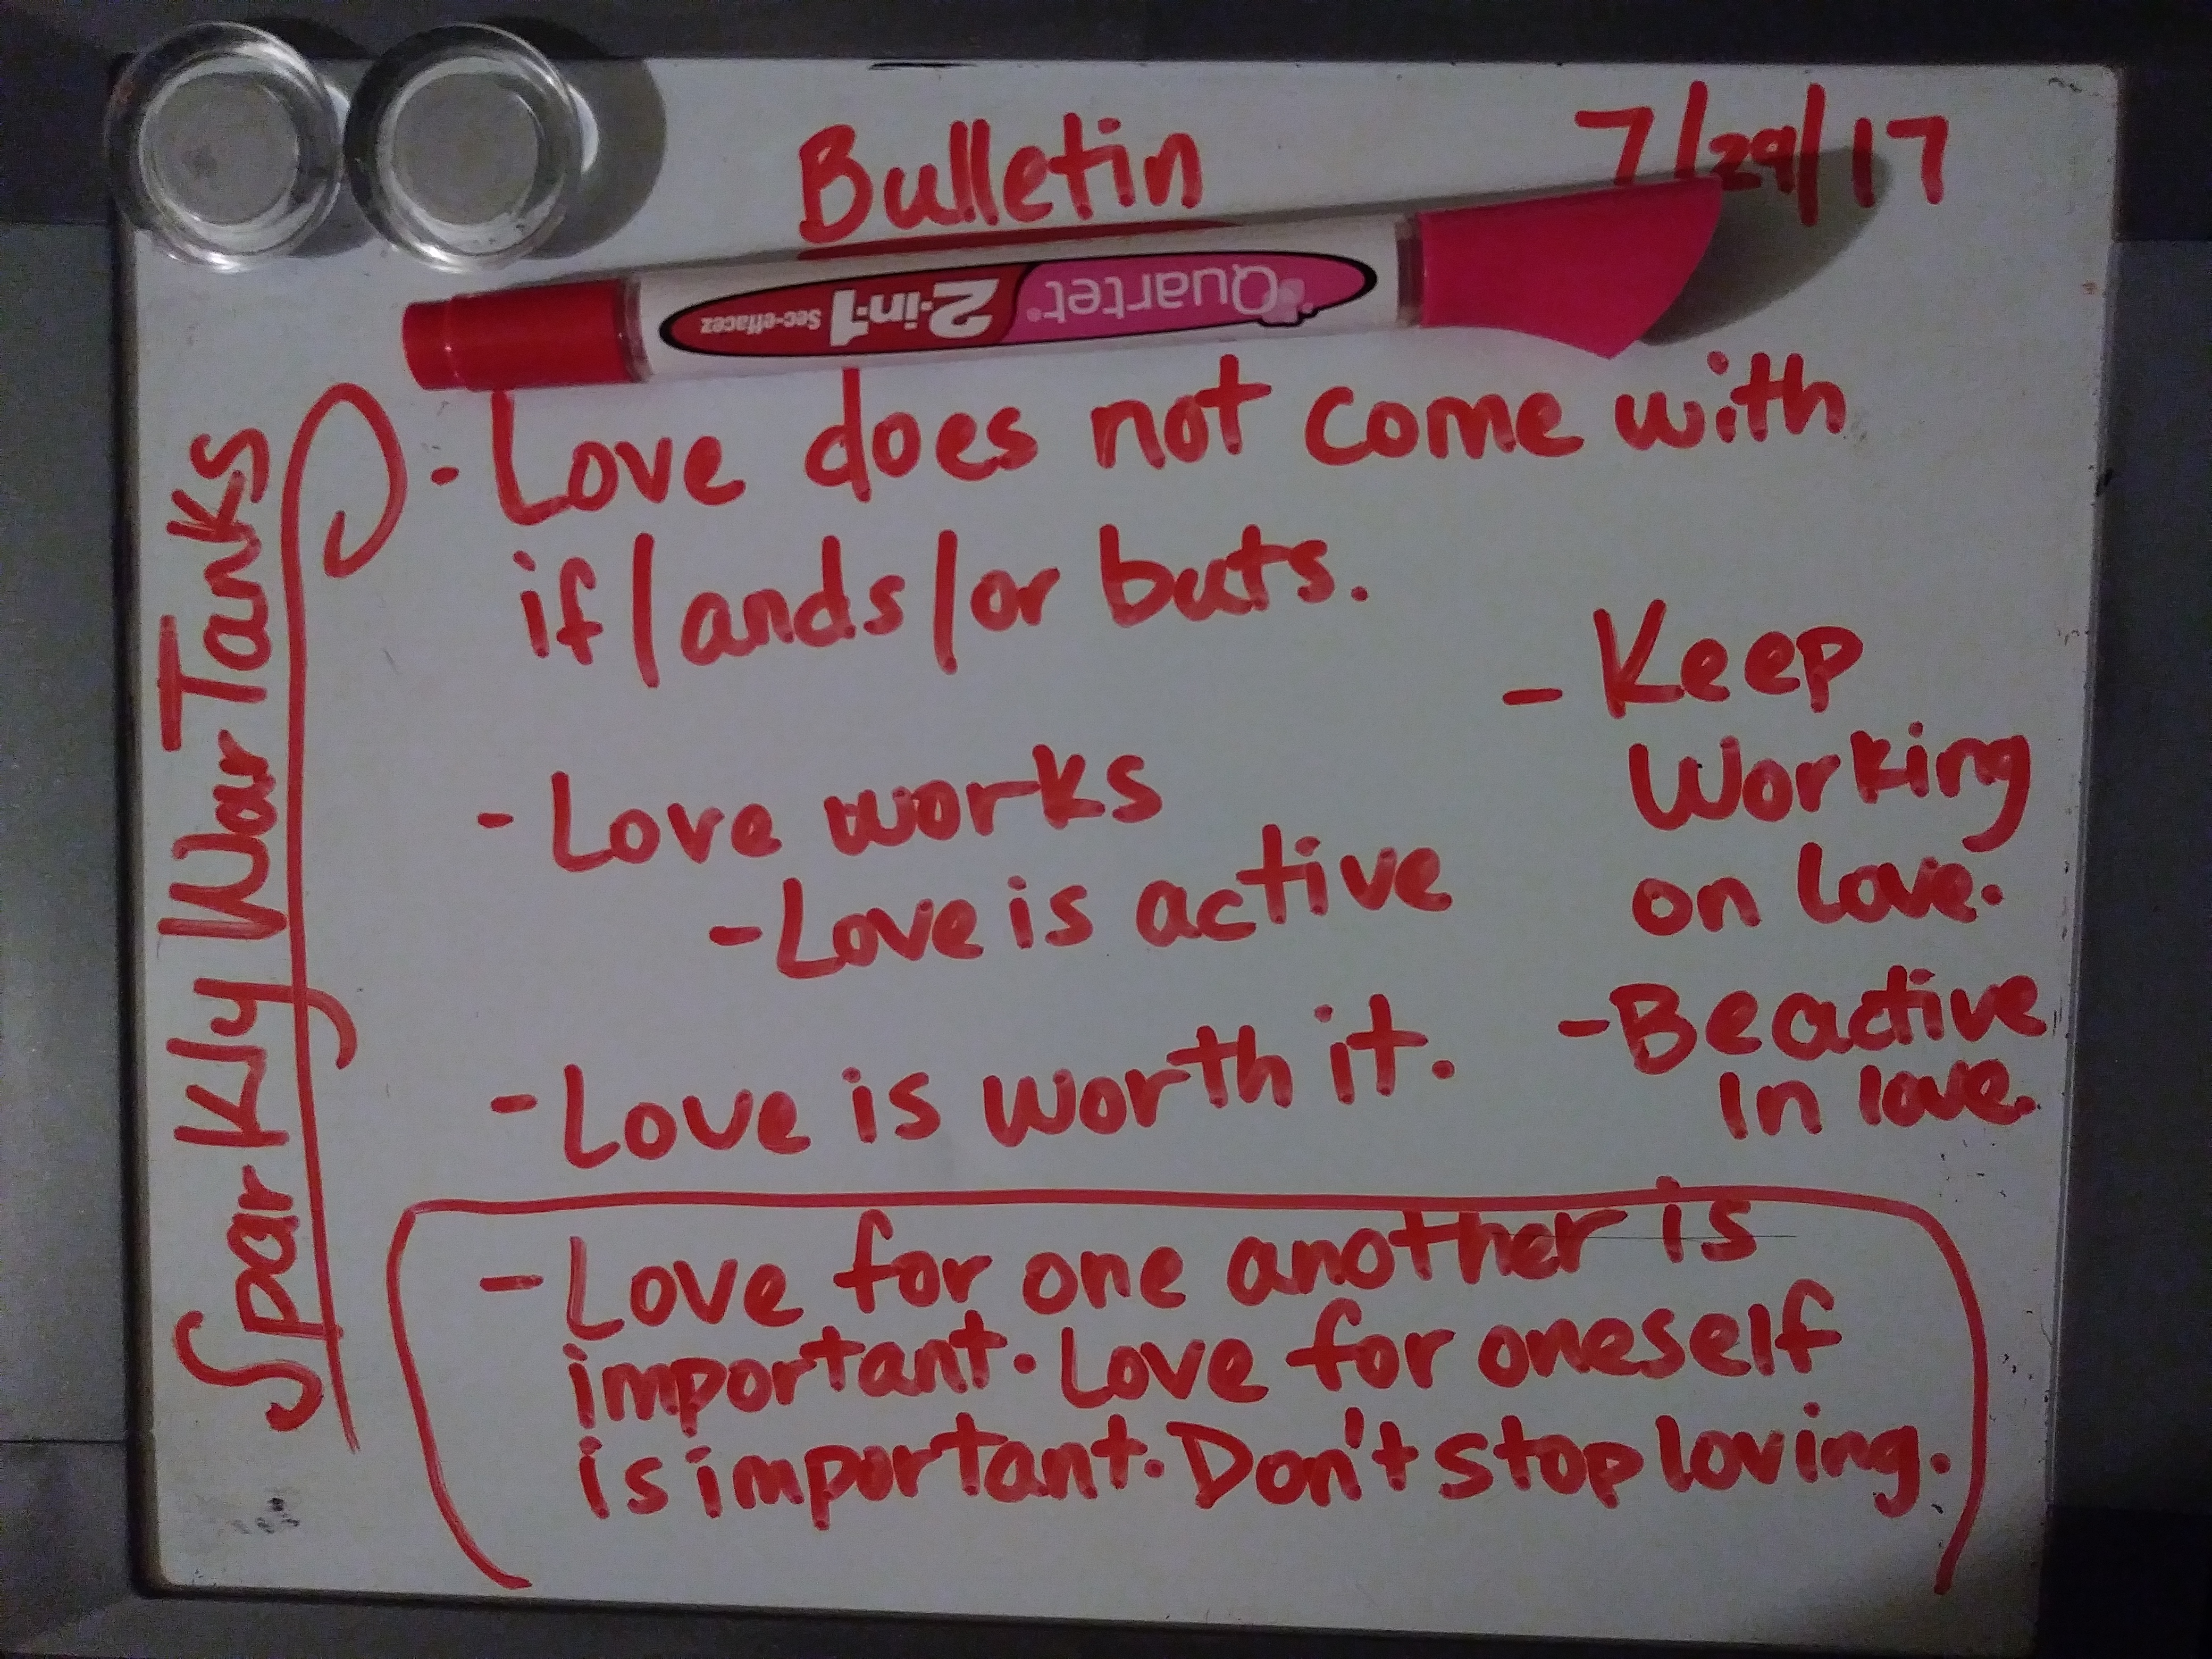 Bulletin
7/29/17
Quartet®
2-in-1
Sec-effacez
Sparkly War Tanks
- Love does not come with
if/ands/or buts.
- Love works
- Love is active
- Love is worth it.
- Keep
Working
on love.
- Be active
In love.
- Love for one another is
important. Love for oneself
is important. Don't stop loving.